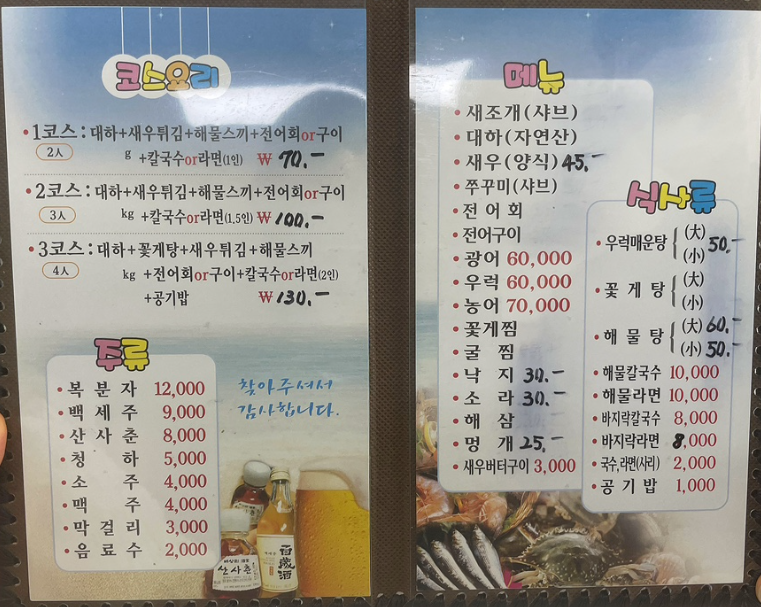 코스요리
• 1코스 : 대하+새우튀김+해물스끼+전어회or구이
2人 g +칼국수or라면(1인) ₩ 70.-
• 2코스 : 대하+새우튀김+해물스끼+전어회or구이
3人 kg +칼국수or라면(1,5인) ₩ 100.-
• 3코스 : 대하+꽃게탕+새우튀김+해물스끼
4人 kg +전어회or구이+칼국수or라면(2인)
+공기밥 ₩ 130.-
주류
• 복분자 12,000
• 백세주 9,000
• 산사춘 8,000
• 청하 5,000
• 소주 4,000
• 맥주 4,000
• 막걸리 3,000
• 음료수 2,000
찾아주셔서
감사합니다.
산사춘
百歲酒
메뉴
• 새조개(샤브)
• 대하(자연산)
• 새우(양식) 45.-
• 쭈꾸미(샤브)
• 전어회
• 전어구이
• 광어 60,000
• 우럭 60,000
• 농어 70,000
• 꽃게찜
• 굴찜
• 낙지 30.-
• 소라 30.-
• 해삼
• 멍개 25.-
• 새우버터구이 3,000
식사류
• 우럭매운탕 (大) 50.-
(小)
• 꽃게탕 (大)
(小)
• 해물탕 (大) 60.-
(小) 50.-
• 해물칼국수 10,000
• 해물라면 10,000
• 바지락칼국수 8,000
• 바지락라면 8,000
• 국수,라면(사리) 2,000
• 공기밥 1,000